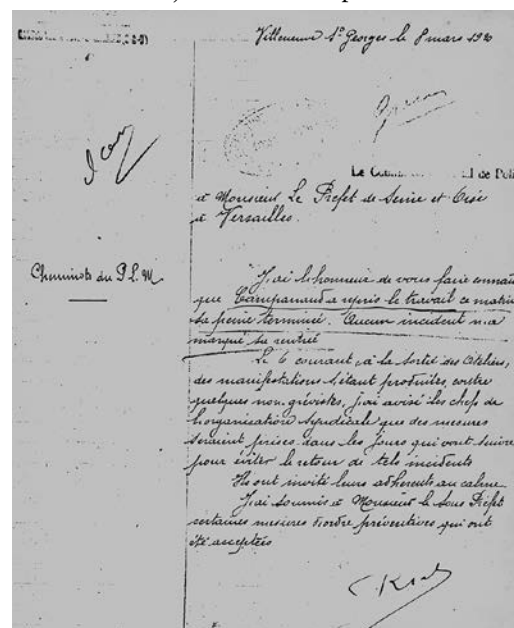 Villeneuve St Georges le 8 mars 1920
Le
al de Poli
à Monsieur Le Préfet de Seine et Oise
à Versailles.
Cheminots du P.L.M.
J'ai l'honneur de vous faire connaît
que Campanaud a repris le travail ce matin
sa peine terminée. Aucun incident n'a
marqué sa rentrée
Le 6 courant, à la sortie des Ateliers,
des manifestations s'étant produites contre
quelques non-grévistes, j'ai avisé les chefs de
l'organisation syndicale que des mesures
seraient prises dans les jours qui vont suivre
pour éviter le retour de tels incidents
Ils ont invité leurs adhérents au calme.
J'ai soumis à Monsieur le Sous Préfet
certaines mesures d'ordre préventives qui ont
été acceptées